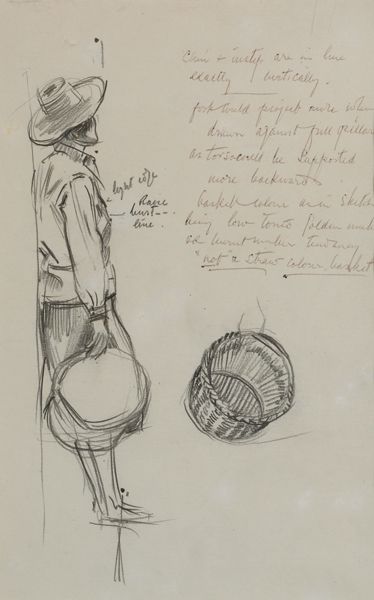 Chin & instep are in line
exactly vertically.
foot would project more when
drawn against full pillar
as torso could be supported
more backwards
basket colour as in sketch
being low tone golden
burnt umber tendency
"not" a straw colour basket
light edge
Raise
bust
line.